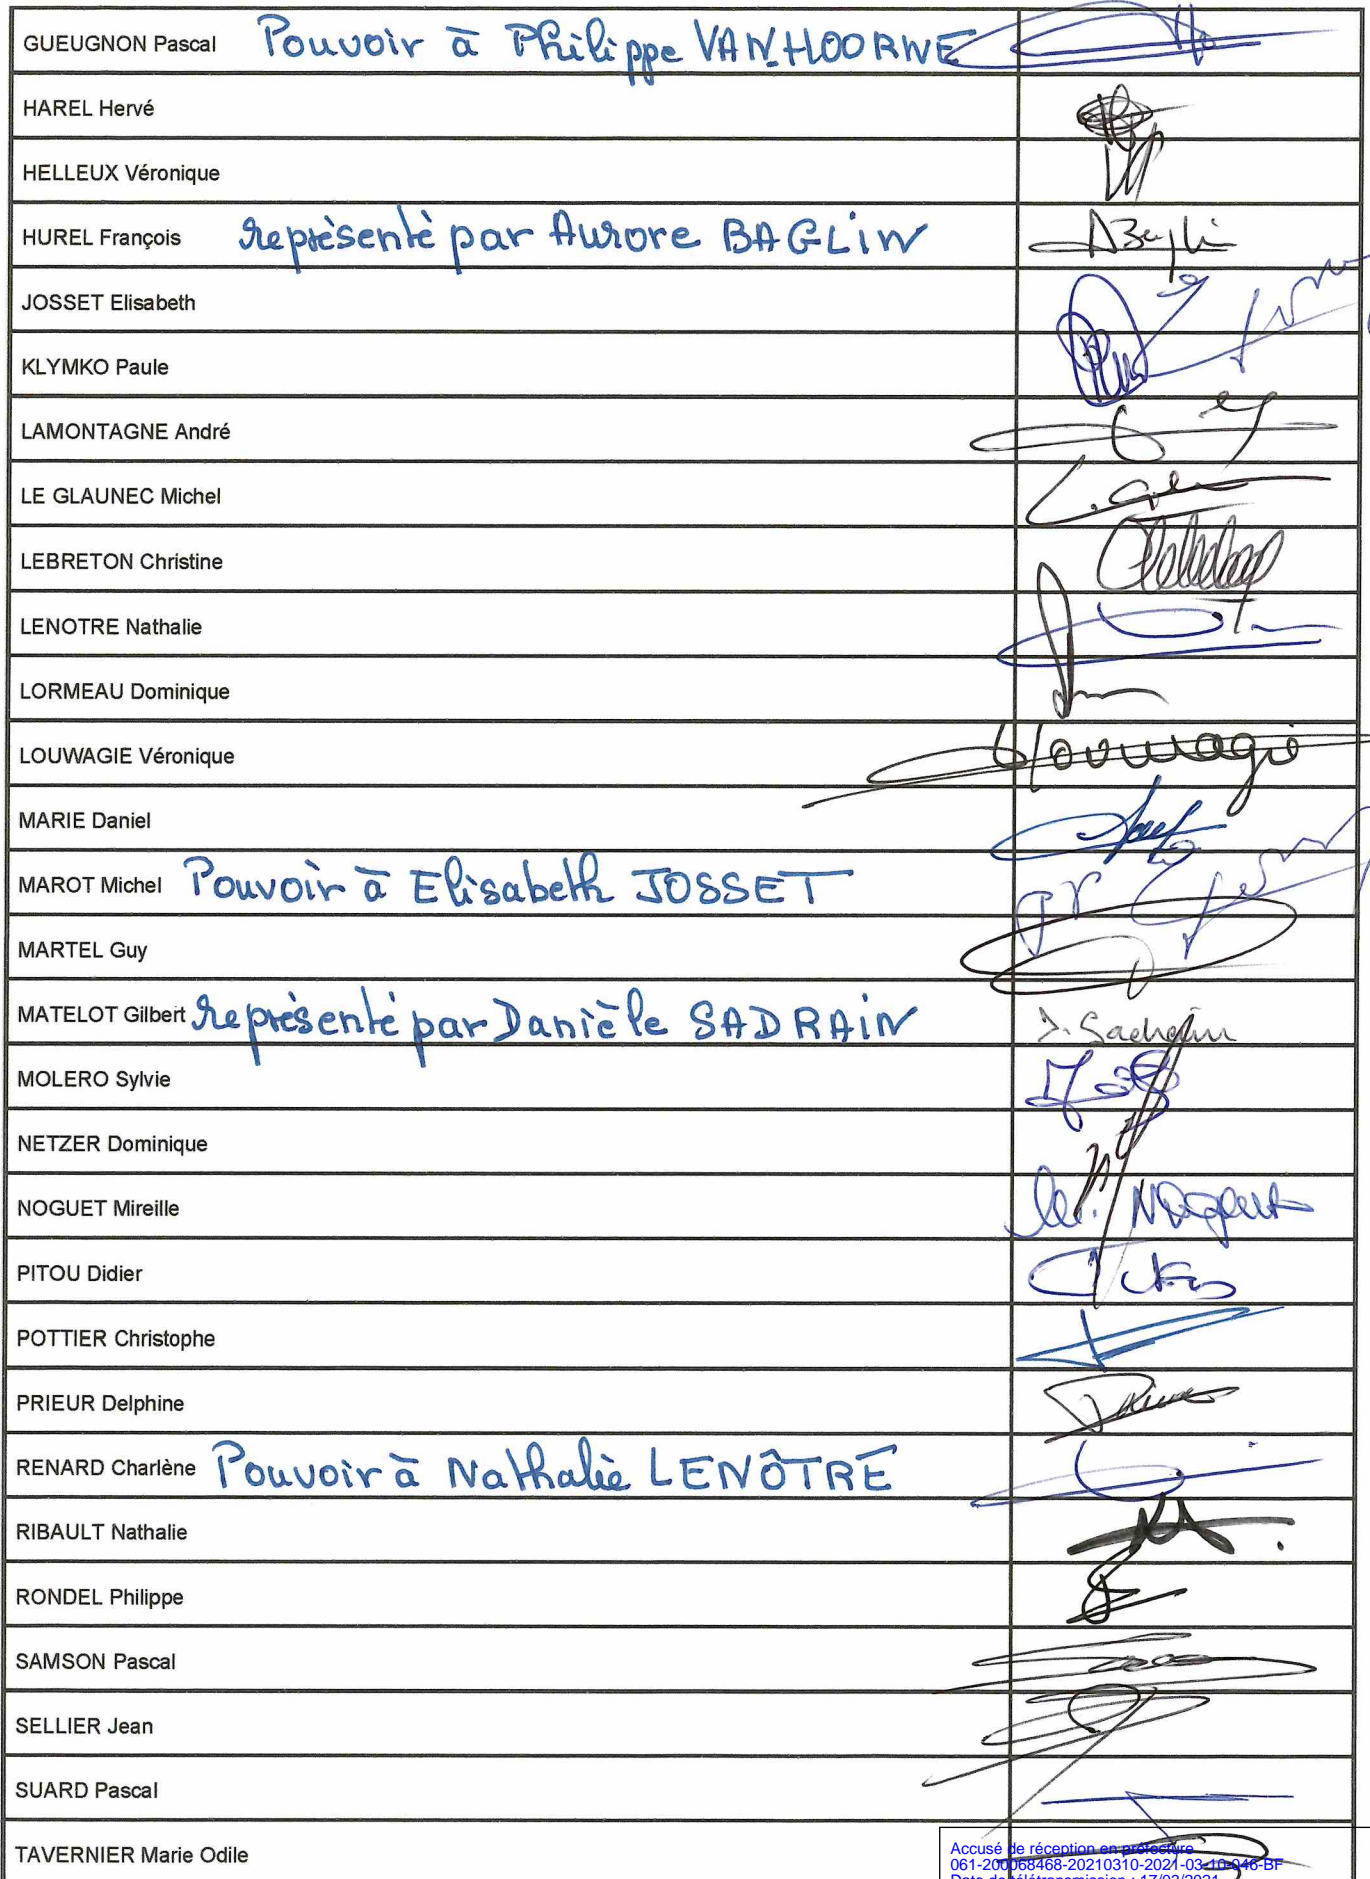 GUEUGNON Pascal Pouvoir à Philippe VANHOORNE
HAREL Hervé
HELLEUX Véronique
HUREL François représenté par Aurore BAGLIN
JOSSET Elisabeth
KLYMKO Paule
LAMONTAGNE André
LE GLAUNEC Michel
LEBRETON Christine
LENOTRE Nathalie
LORMEAU Dominique
LOUWAGIE Véronique
MARIE Daniel
MAROT Michel Pouvoir à Elisabeth JOSSET
MARTEL Guy
MATELOT Gilbert représenté par Danièle SADRAIN
MOLERO Sylvie
NETZER Dominique
NOGUET Mireille
PITOU Didier
POTTIER Christophe
PRIEUR Delphine
RENARD Charlène Pouvoir à Nathalie LENÔTRE
RIBAULT Nathalie
RONDEL Philippe
SAMSON Pascal
SELLIER Jean
SUARD Pascal
TAVERNIER Marie Odile
Accusé de réception en préfecture
061-200068468-20210310-2021-03-10-046-BF
Date de télétransmission : 17/03/2021